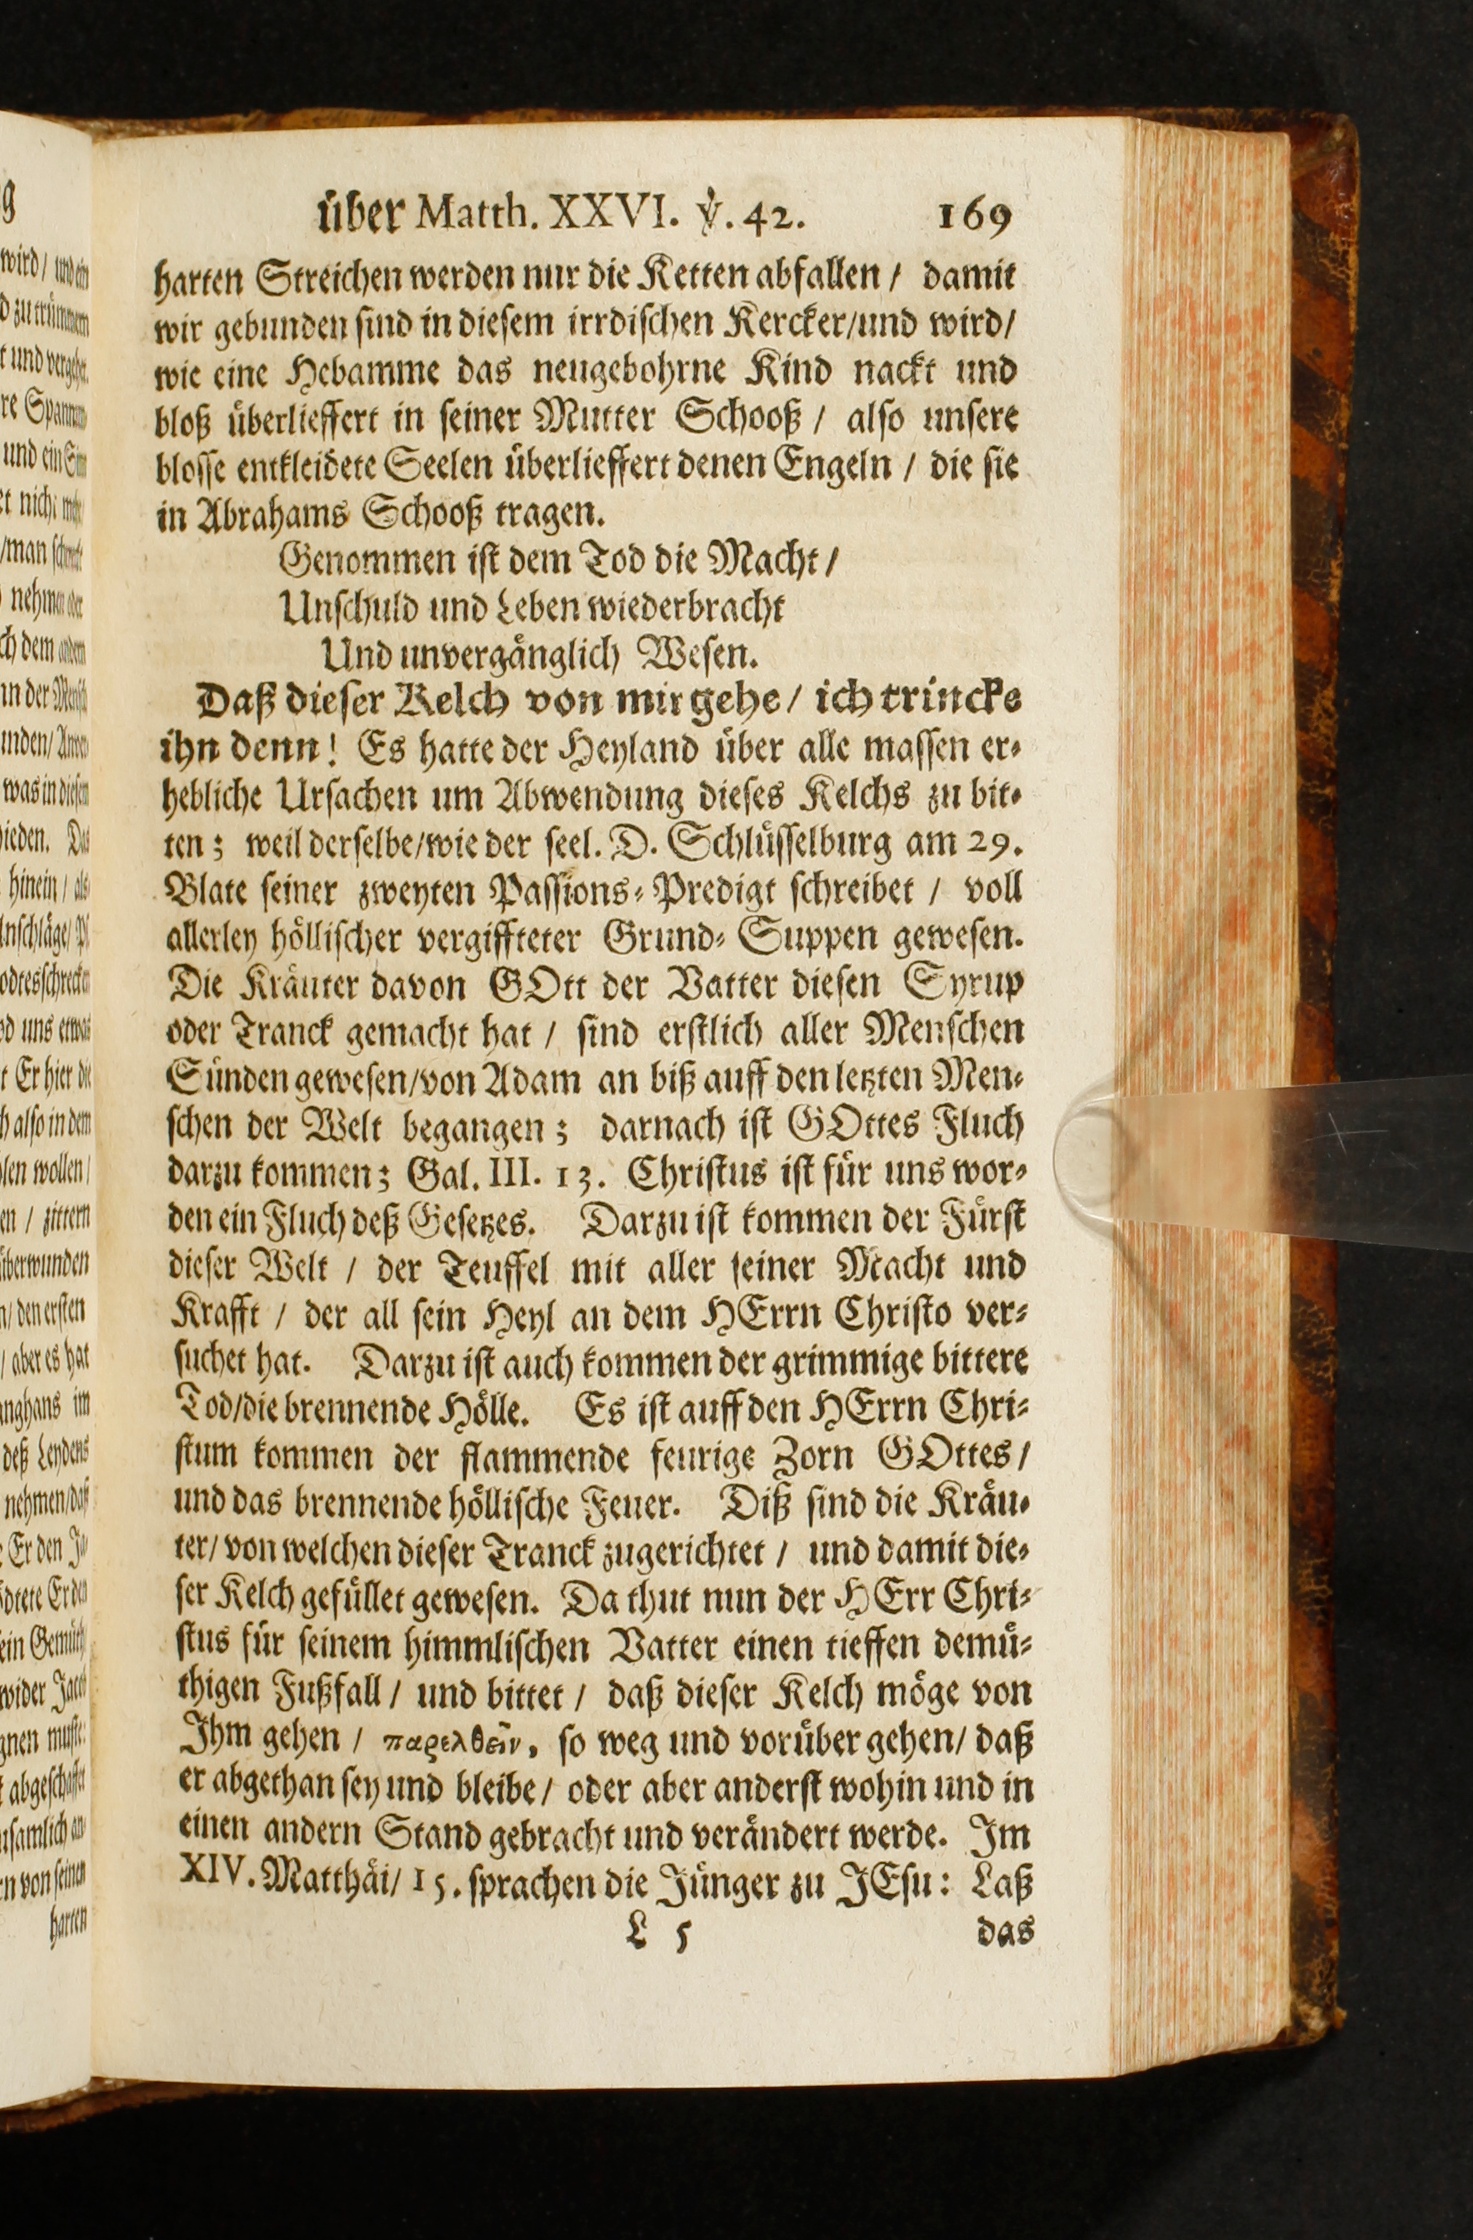 über Matth. XXVI. ℣. 42. 169
harten Streichen werden nur die Ketten abfallen / damit
wir gebunden sind in diesem irrdischen Kercker/und wird/
wie eine Hebamme das neugebohrne Kind nackt und
bloß überlieffert in seiner Mutter Schooß / also unsere
blosse entkleidete Seelen überlieffert denen Engeln / die sie
in Abrahams Schooß tragen.
Genommen ist dem Tod die Macht /
Unschuld und Leben wiederbracht
Und unvergänglich Wesen.
Daß dieser Kelch von mir gehe / ich trincke
ihn denn! Es hatte der Heyland über alle massen er-
hebliche Ursachen um Abwendung dieses Kelchs zu bit-
ten; weil derselbe/wie der seel. D. Schlüsselburg am 29.
Blate seiner zweyten Passions-Predigt schreibet / voll
allerley höllischer vergiffteter Grund-Suppen gewesen.
Die Kräuter davon GOtt der Vatter diesen Syrup
oder Tranck gemacht hat / sind erstlich aller Menschen
Sünden gewesen/von Adam an biß auff den letzten Men-
schen der Welt begangen; darnach ist GOttes Fluch
darzu kommen; Gal. III. 13. Christus ist für uns wor-
den ein Fluch deß Gesetzes. Darzu ist kommen der Fürst
dieser Welt / der Teuffel mit aller seiner Macht und
Krafft / der all sein Heyl an dem HErrn Christo ver-
suchet hat. Darzu ist auch kommen der grimmige bittere
Tod/die brennende Hölle. Es ist auff den HErrn Chri-
stum kommen der flammende feurige Zorn GOttes /
und das brennende höllische Feuer. Diß sind die Kräu-
ter/ von welchen dieser Tranck zugerichtet / und damit die-
ser Kelch gefüllet gewesen. Da thut nun der HErr Chri-
stus für seinem himmlischen Vatter einen tieffen demü-
thigen Fußfall / und bittet / daß dieser Kelch möge von
Ihm gehen / παρελθεῖν, so weg und vorüber gehen/ daß
er abgethan sey und bleibe / oder aber anderst wohin und in
einen andern Stand gebracht und verändert werde. Im
XIV. Matthäi/ 15. sprachen die Jünger zu JEsu: Laß
L 5 das